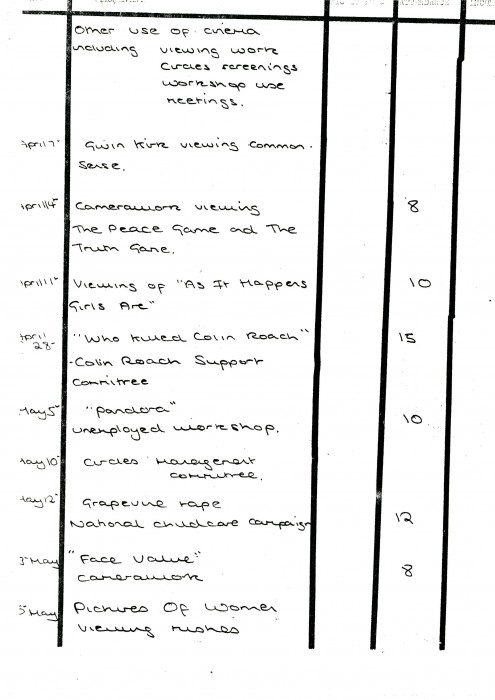 Other use of cinema
including viewing work
Circles screenings
workshop use
meetings.
April 7 Gwin Kirk viewing Common
Sense.
April 14 Camerawork viewing 8
The Peace Game and The
Truth Game.
April 11 Viewing of "As It Happens 10
Girls Are"
April "Who Killed Colin Roach" 15
28 - Colin Roach Support
Committee
May 5 "Pandora" 10
unemployed workshop.
May 10 Circles Management
committee.
May 12 Grapevine tape
National childcare campaign 12
3 May "Face Value" 8
camerawork
5 May Pictures Of Women
viewing rushes